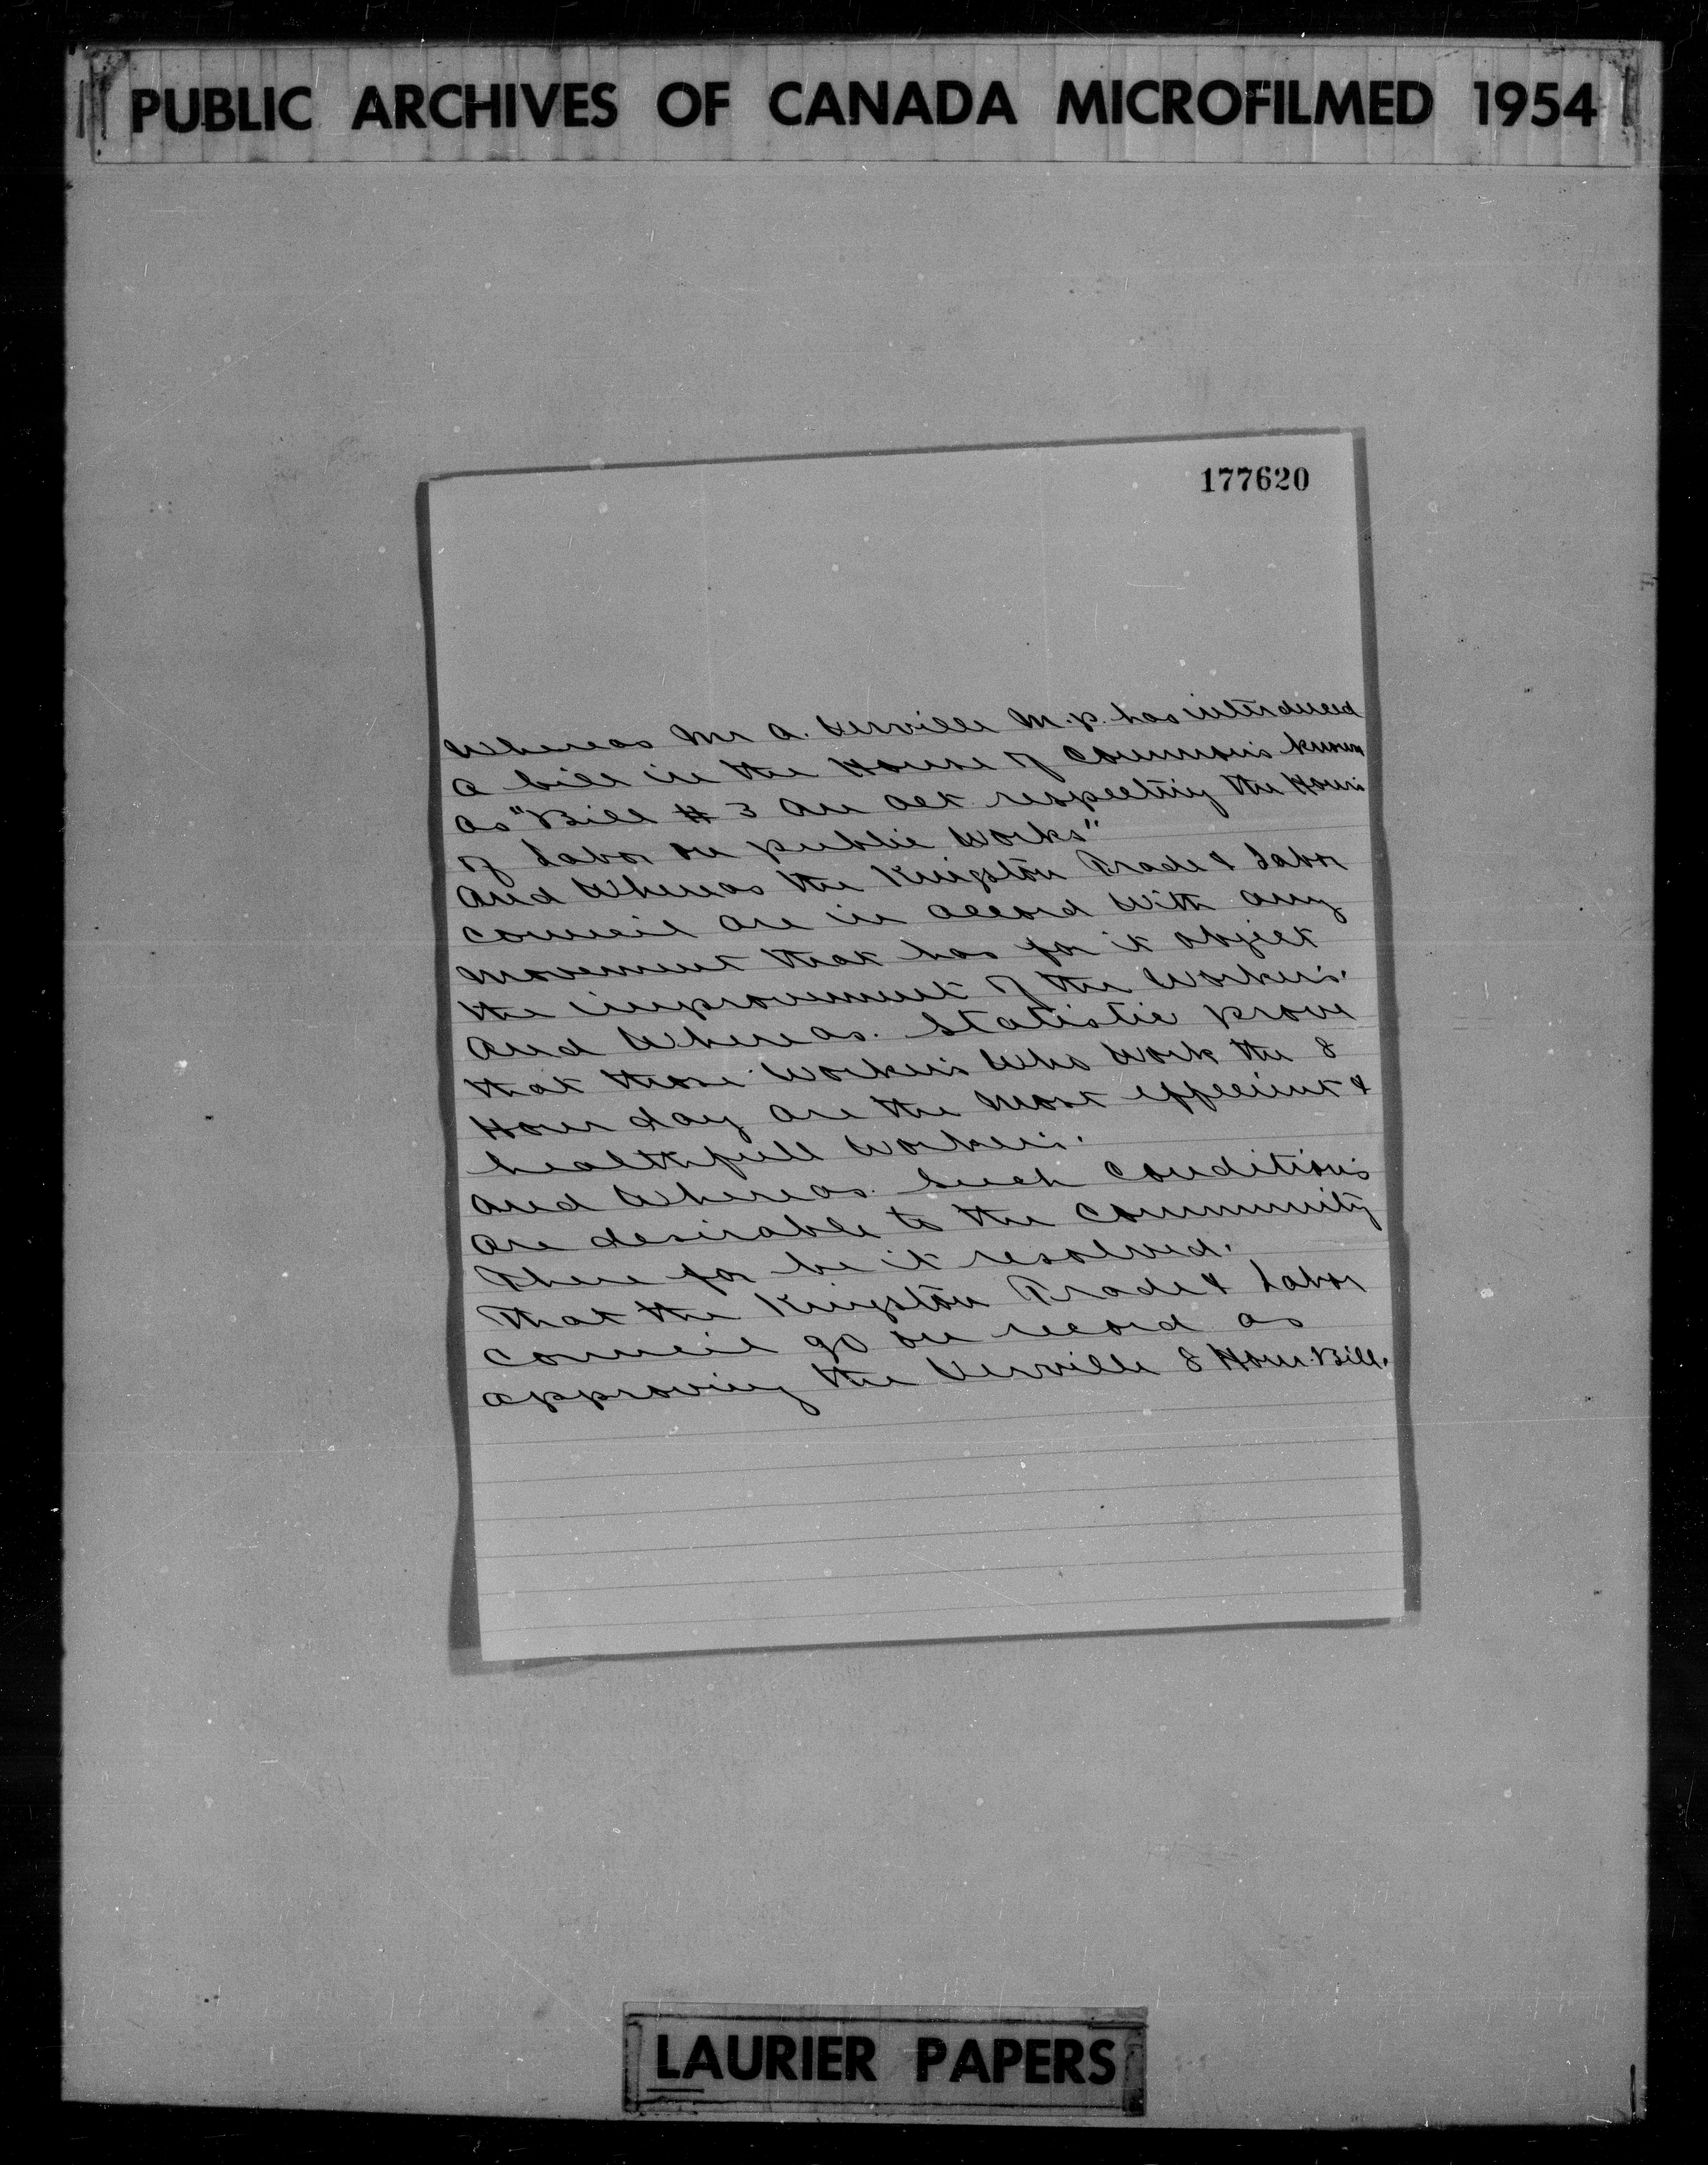 PUBLIC ARCHIVES OF CANADA MICROFILMED 1954
177620
Whereas Mr A. Verville M.P. has interduced
a bill in the House of Common's known
as "Bill # 3 An act respecting the Hours
of Labor on public Works"
And Whereas the Kingston Trade & Labor
Council are in accord with any
movement that has for it object
the improvement of the Worker's.
And Whereas. Statistic prove
that those Worker's Who Work the 8
Hour day are the most effecient &
healthfull Worker's.
And Whereas. Such Condition's
are desirable to the Community
There for be it resolved.
That the Kingston Trade & Labor
Council go on record as
approving the Verville 8 Hour Bill.
LAURIER PAPERS